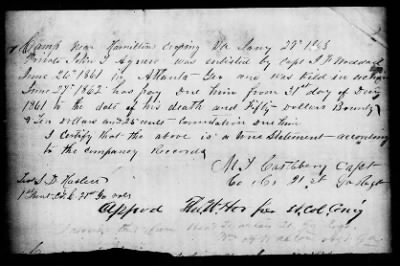 Camp near Hamiltons Crossing Va Jany 27th 1863
Private John J Agnew was enlisted by Capt J W Woodward
June 26th 1861 in Atlanta Geo and was killed in action
June 27th 1862 has pay due him from 31st day of Decr
1861 to the date of his death and Fifty Dollars Bounty
& Ten dollars and 25 cents commutation due him
I Certify that the above is a true Statement according
to the company Records
M. J. Castleberry Capt
Co "C" 21st Ga Regt
Test J. D. Haslett
Ga vols
Approd Tho W Hooper Lt Col Comg